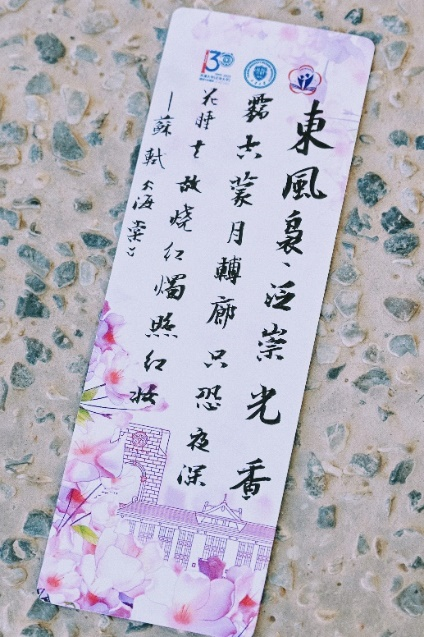 東風裊〻泛崇光香
霧空蒙月轉廊只恐夜深
花睡去故燒红燭照红妝
—蘇軾《海棠》
130